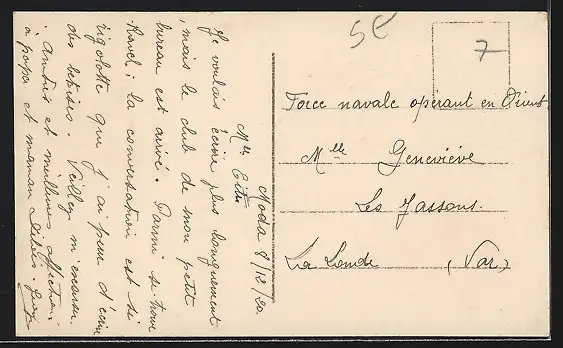 Moda 8/12/20.
Mlle
Je voulais écrire plus longuement
, mais le club de mon petit
bureau est arrivé. Parmi se trouve
Ravel ; la conversation est si
rigolotte que j'ai peur d'écrire
des bêtises. Veuillez m'excuser.
Amitiés et meilleures affections
à papa et maman
5E
7
Force navale opérant en Orient.
Mlle Geneviève
Les Jassons.
La Londe (Var)